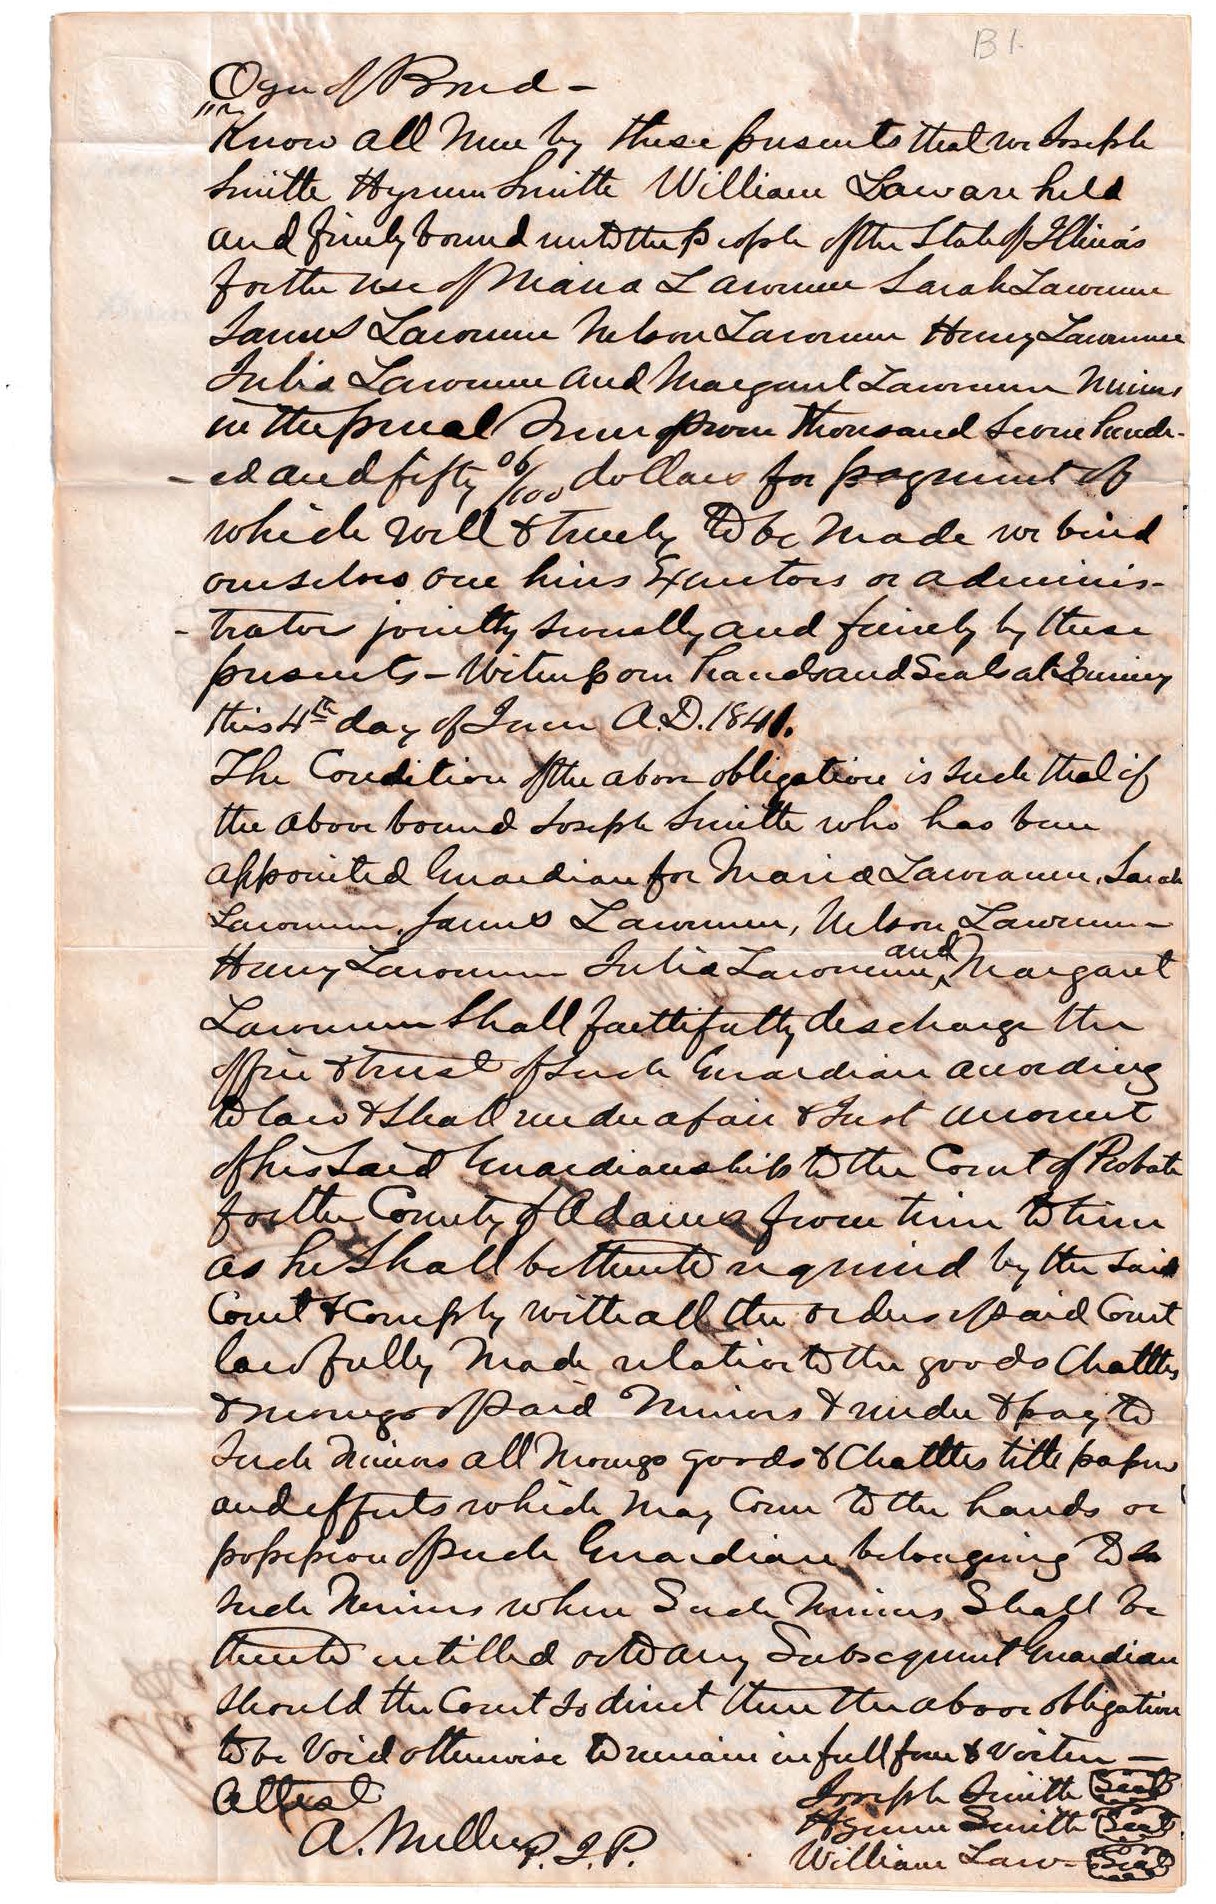 B 1.
Copy of Bond –
Know all Men by these presents that we Joseph
Smith Hyrum Smith William Law are held
and firmly bound unto the People of the State of Illinois
for the use of Maria Lawrence Sarah Lawrence
James Lawrence Nelson Lawrence Henry Lawrence
Julia Lawrence and Margaret Lawrence Minors
in the penal Sum of Seven thousand Seven hundr-
– ed and fifty 06/100 dollars for payment of
which well & truely to be Made we bind
ourselves our heirs Executors or adminis-
– trators jointly severally and firmly by these
presents – Witness our hands and Seals at Quincy
this 4th day of June A.D. 1841.
The Condition of the above obligation is Such that if
the above bound Joseph Smith who has been
appointed Guardian for Maria Lawrance, Sarah
Lawrence, James Lawrence, Nelson Lawrence
Henry Lawrence Julia Lawrence, and Margaret
Lawrence Shall faithfully descharge the
office & trust of Such Guardian according
to law & Shall render a fair & Just account
of his Said Guardianship to the Court of Probate
for the County of Adams from time to time
as he Shall be thereto required by the Said
Court & Comply with all the orders of Said Court
lawfully Made relative to the goods Chattles
& moneys of Said Minors & render & pay to
Such Minors all Moneys goods & Chattles title papers
and effects which May Come to the hands or
possession of Such Guardian belonging to
Such Minors when Such Minors Shall be
thereto entitled or to any Subsequent Guardian
Should the Court So direct then the above obligation
to be Void otherwise to remain in full force & Virtue –
Attest
Joseph Smith Seal
Hyrum Smith Seal
A. Miller P. J. P.
William Law – Seal